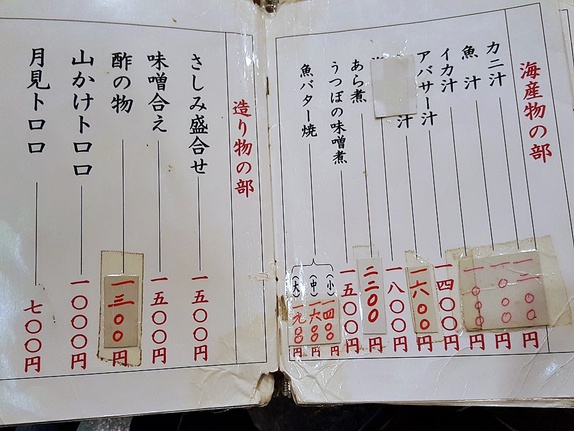 海産物の部
カニ汁 円
魚汁 円
イカ汁 一〇〇〇円
アバサー汁 一四〇〇円
汁 一六〇〇円
一八〇〇円
あら煮 二二〇〇円
うつぼの味噌煮 一五〇〇円
魚バター焼
(小) 一四〇〇円
(中) 一六〇〇円
(大) 一九〇〇円
造り物の部
さしみ盛合せ 一五〇〇円
味噌合え 一五〇〇円
酢の物 一三〇〇円
山かけトロロ 一〇〇〇円
月見トロロ 七〇〇円